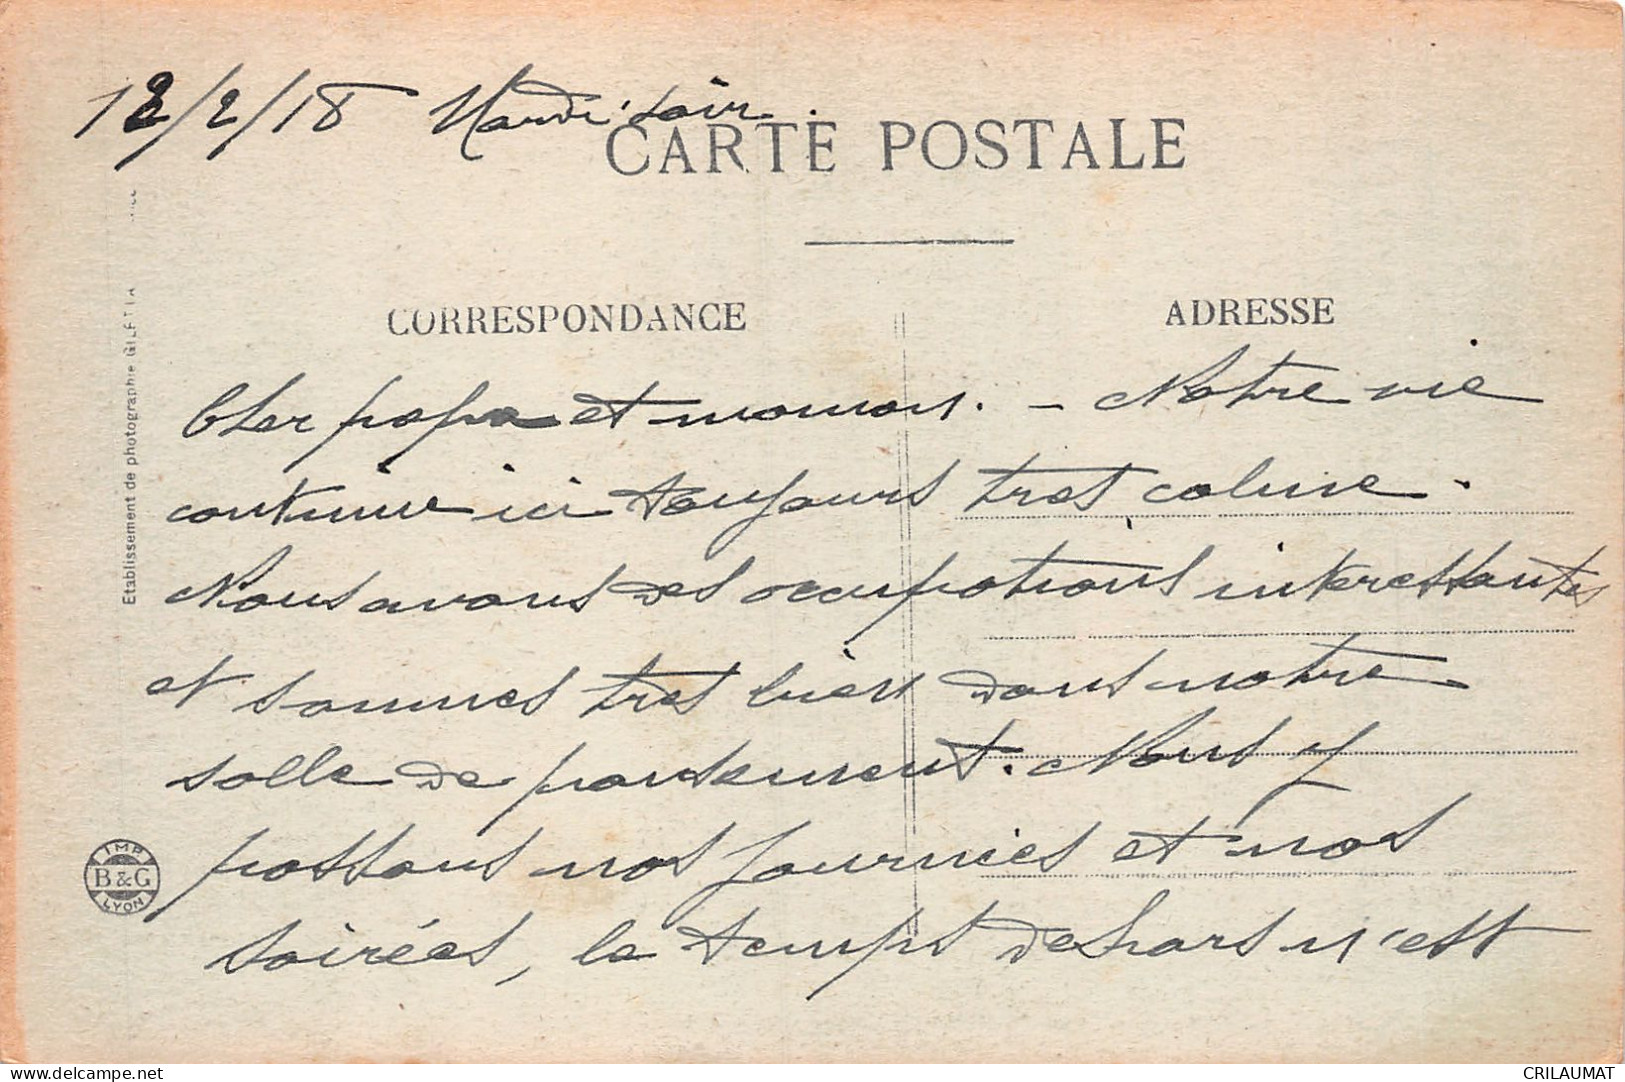 12/2/18 Mardi soir.
CARTE POSTALE
CORRESPONDANCE
ADRESSE
Cher papa et maman. - Notre vie
continue ici toujours tres calme.
Nous avons des occupations interessantes
et sommes tres bien dans notre
salle de pansement. Nous y
passons nos journées et nos
soirées, le temps dehors n'est
Etablissement de photographie GILETTA
IMP
B & G
LYON
CRILAUMAT